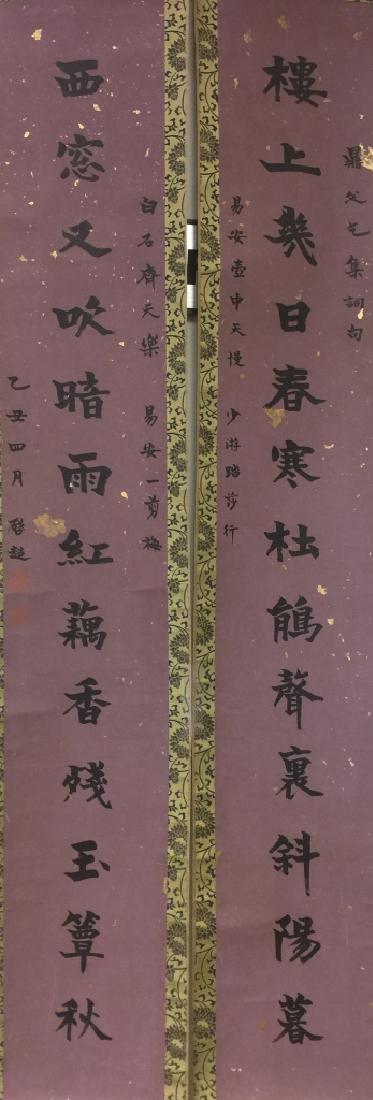 兄集詞句
樓上幾日春寒杜鵑聲裏斜陽暮
易安壺中天慢 少游踏莎行
白石齊天樂 易安一剪梅
西窓又吹暗雨紅藕香殘玉簟秋
乙丑四月 啓超